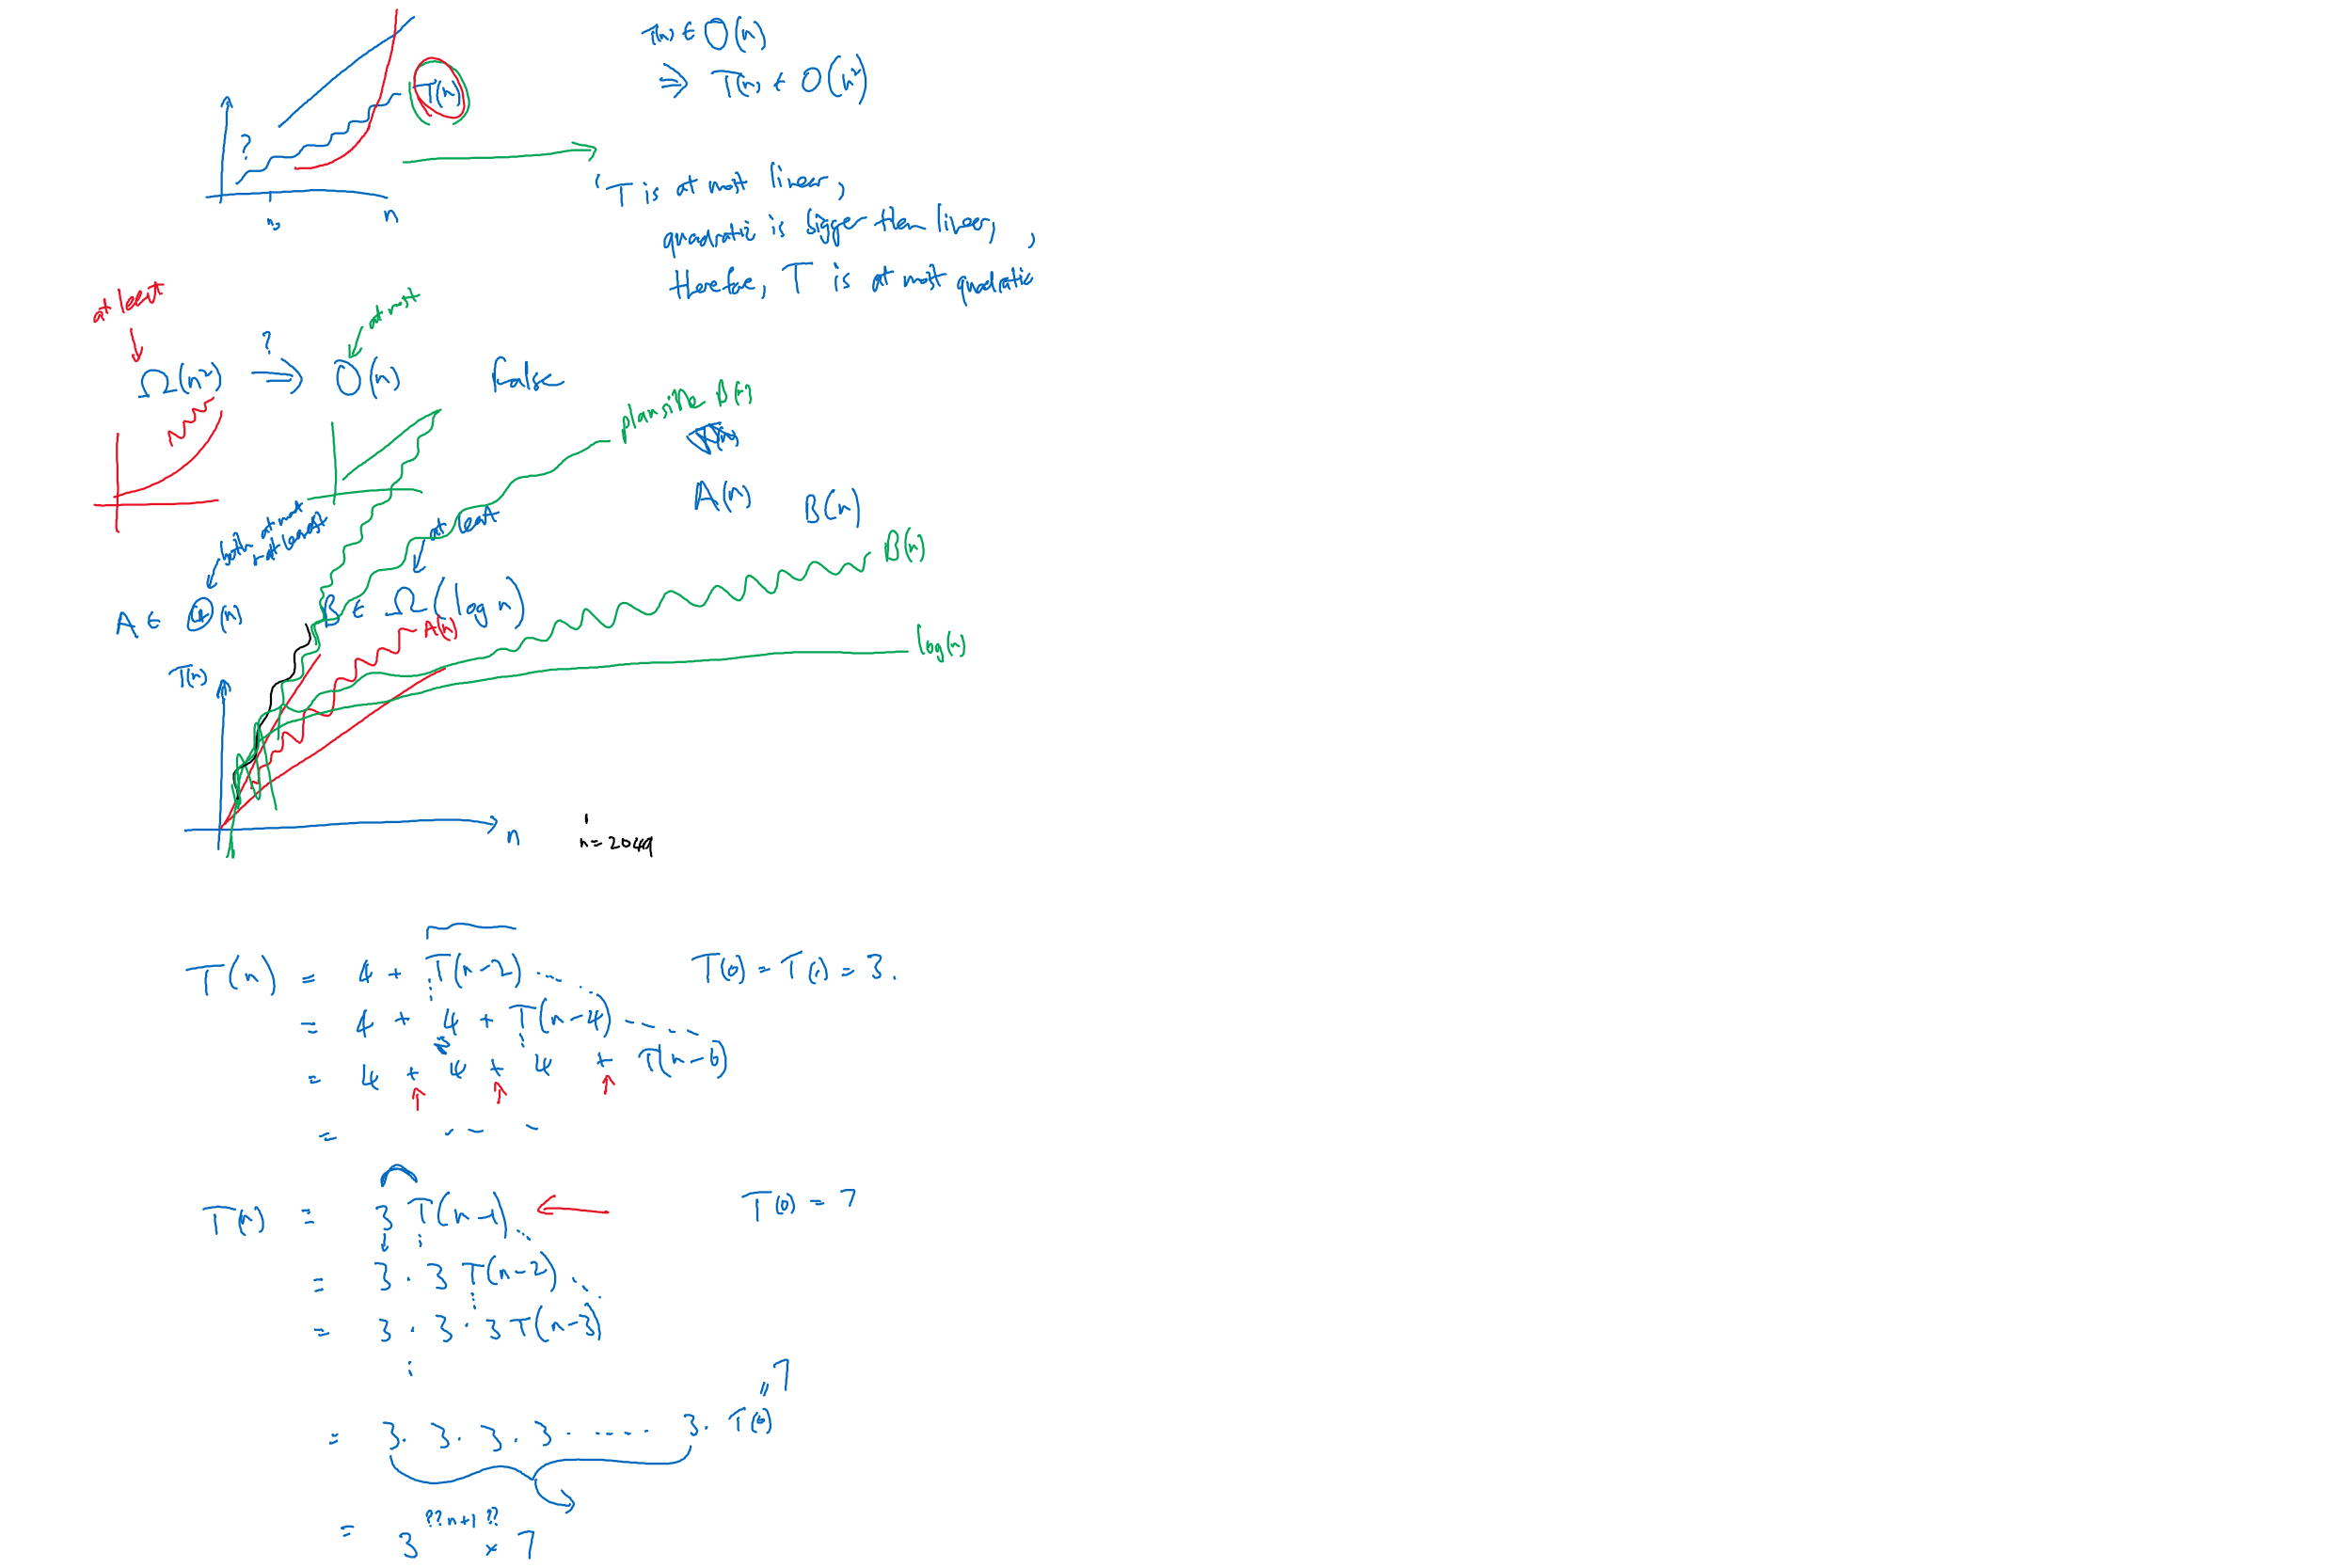 T(n) ∈ O(n)
⇒ T(n) ∈ O(n²)
T(n)
?
n₀ n
'T is at most linear,
quadratic is bigger than linear,
therefore, T is at most quadratic'
at least
at most
Ω(n²) ?⇒ O(n) False
plausible B(n)
A(n) B(n)
both at most
& at least
at least
B(n)
A ∈ Θ(n) B ∈ Ω(log n)
A(n)
log(n)
T(n)
n
n = 2049
T(n) = 4 + T(n-2) T(0) = T(1) = 3.
= 4 + 4 + T(n-4)
= 4 + 4 + 4 + T(n-6)
= ...
T(n) = 3 T(n-1) T(0) = 7
= 3 · 3 T(n-2)
= 3 · 3 · 3 T(n-3)
⋮
= 3 · 3 · 3 · 3 · ..... 3 · T(0) = 7
= 3^(?? n+1 ??) × 7